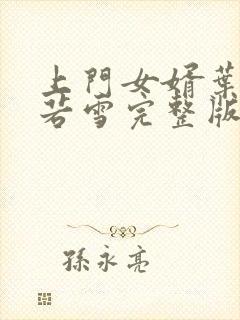 上門女婿葉
若雪完整版
孫永亮